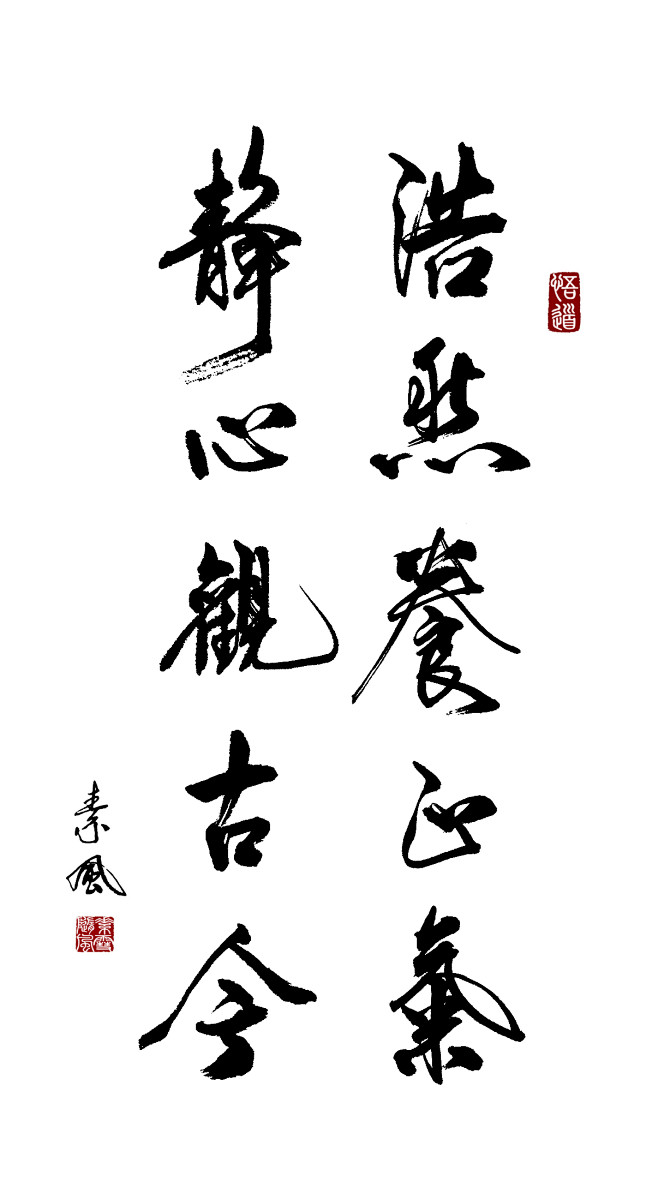 浩然養正氣
靜心觀古今
素風
悟道